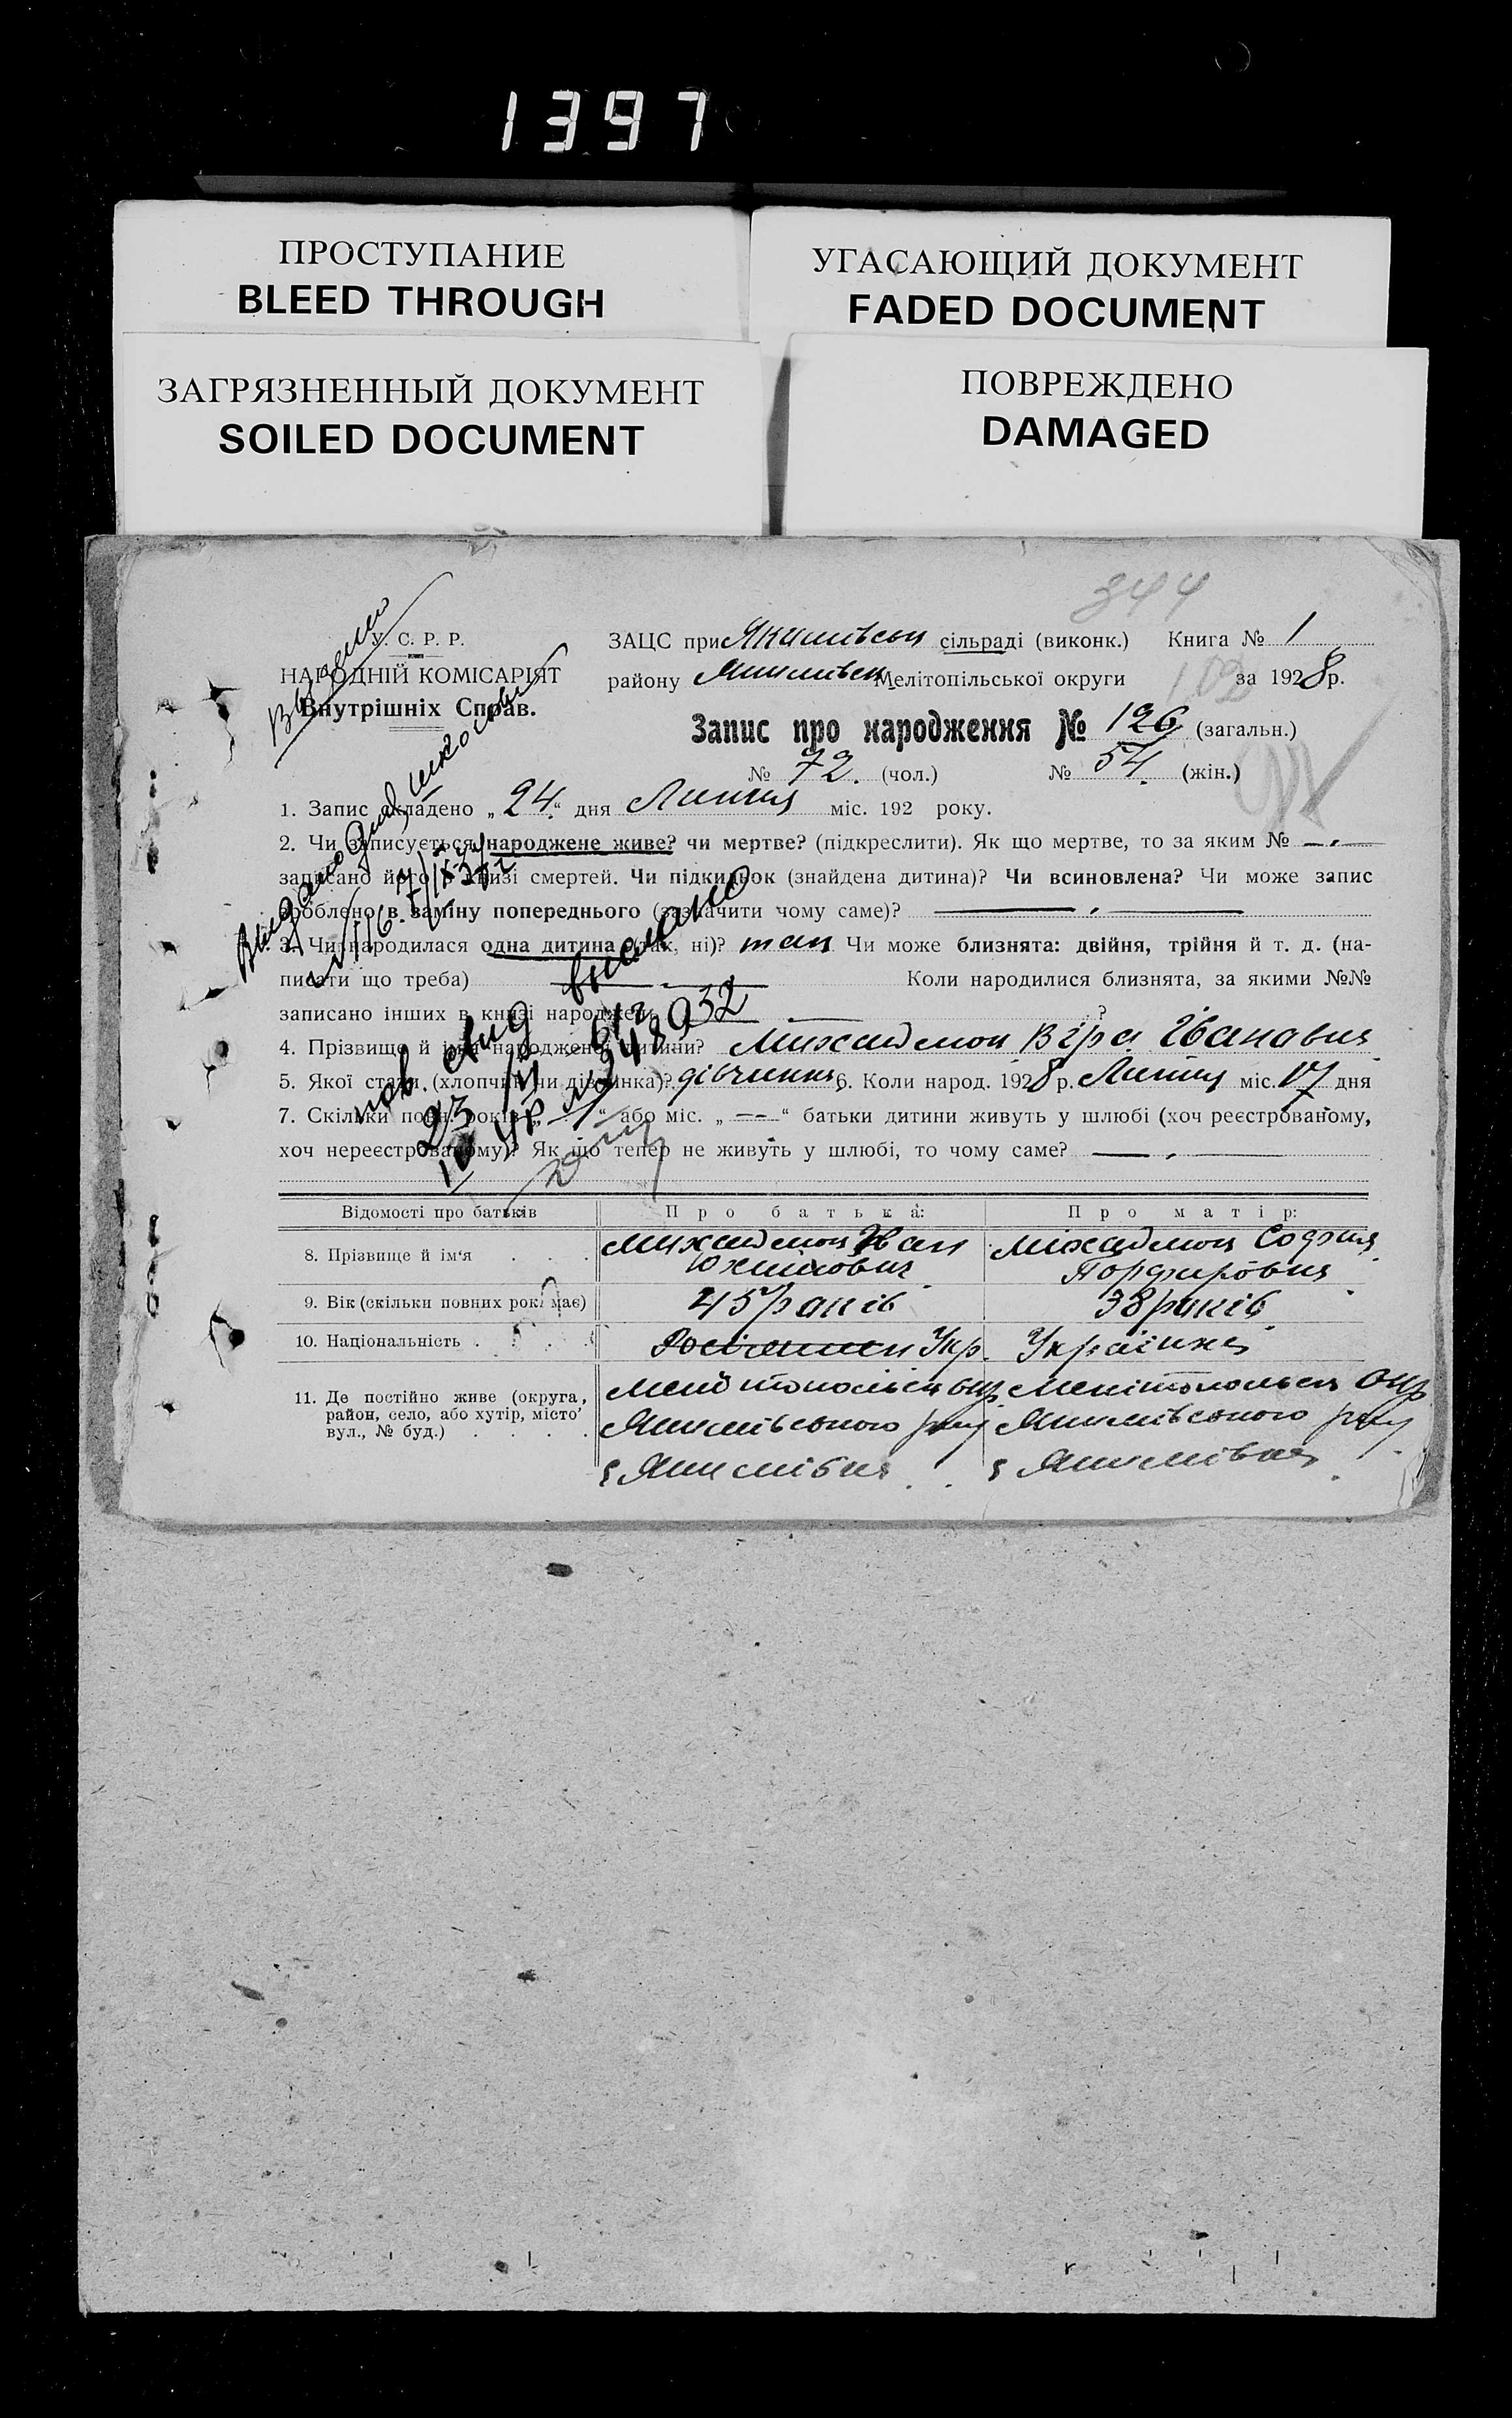 1397
ПРОСТУПАНИЕ
BLEED THROUGH
УГАСАЮЩИЙ ДОКУМЕНТ
FADED DOCUMENT
ЗАГРЯЗНЕННЫЙ ДОКУМЕНТ
SOILED DOCUMENT
ПОВРЕЖДЕНО
DAMAGED
344
У. С. Р. Р.
НАРОДНІЙ КОМІСАРІЯТ
Внутрішніх Справ.
ЗАЦС при Якимівськ сільраді (виконк.) Книга № 1
району Якимівськ Мелітопільської округи за 1928 р.
Запис про народження № 126 (загальн.)
№ 72. (чол.) № 54. (жін.)
1. Запис складено „24“ дня Липня міс. 192 року.
2. Чи записується народжене живе? чи мертве? (підкреслити). Як що мертве, то за яким № —
записано його в книзі смертей. Чи підкидьок (знайдена дитина)? Чи всиновлена? Чи може запис
зроблено в заміну попереднього (зазначити чому саме)? —
3. Чи народилася одна дитина (так, ні)? так Чи може близнята: двійня, трійня й т. д. (на-
писати що треба) — Коли народилися близнята, за якими №№
записано інших в книзі народжень — ?
4. Прізвище й ім'я народженої дитини? Віра Іванавна
5. Якої статі (хлопчик чи дівчинка)? дівчинка 6. Коли народ. 1928 р. Липня міс. 17 дня
7. Скільки повн. років „—“ або міс. „——“ батьки дитини живуть у шлюбі (хоч реєстрованому,
хоч нереєстрованому)? Як що тепер не живуть у шлюбі, то чому саме? —
Відомості про батьків Про батька: Про матір:
8. Прізвище й ім'я Иван Юхимович София Порфировна
9. Вік (скільки повних рок. має) 45 років 38 років
10. Національність Укр. Українка
11. Де постійно живе (округа,
район, село, або хутір, місто
вул., № буд.)
Мелітопольськ окр Мелітопольськ Окр
Якимівського рну Якимівського рну
с Якимівка с Якимівка
Видано
932